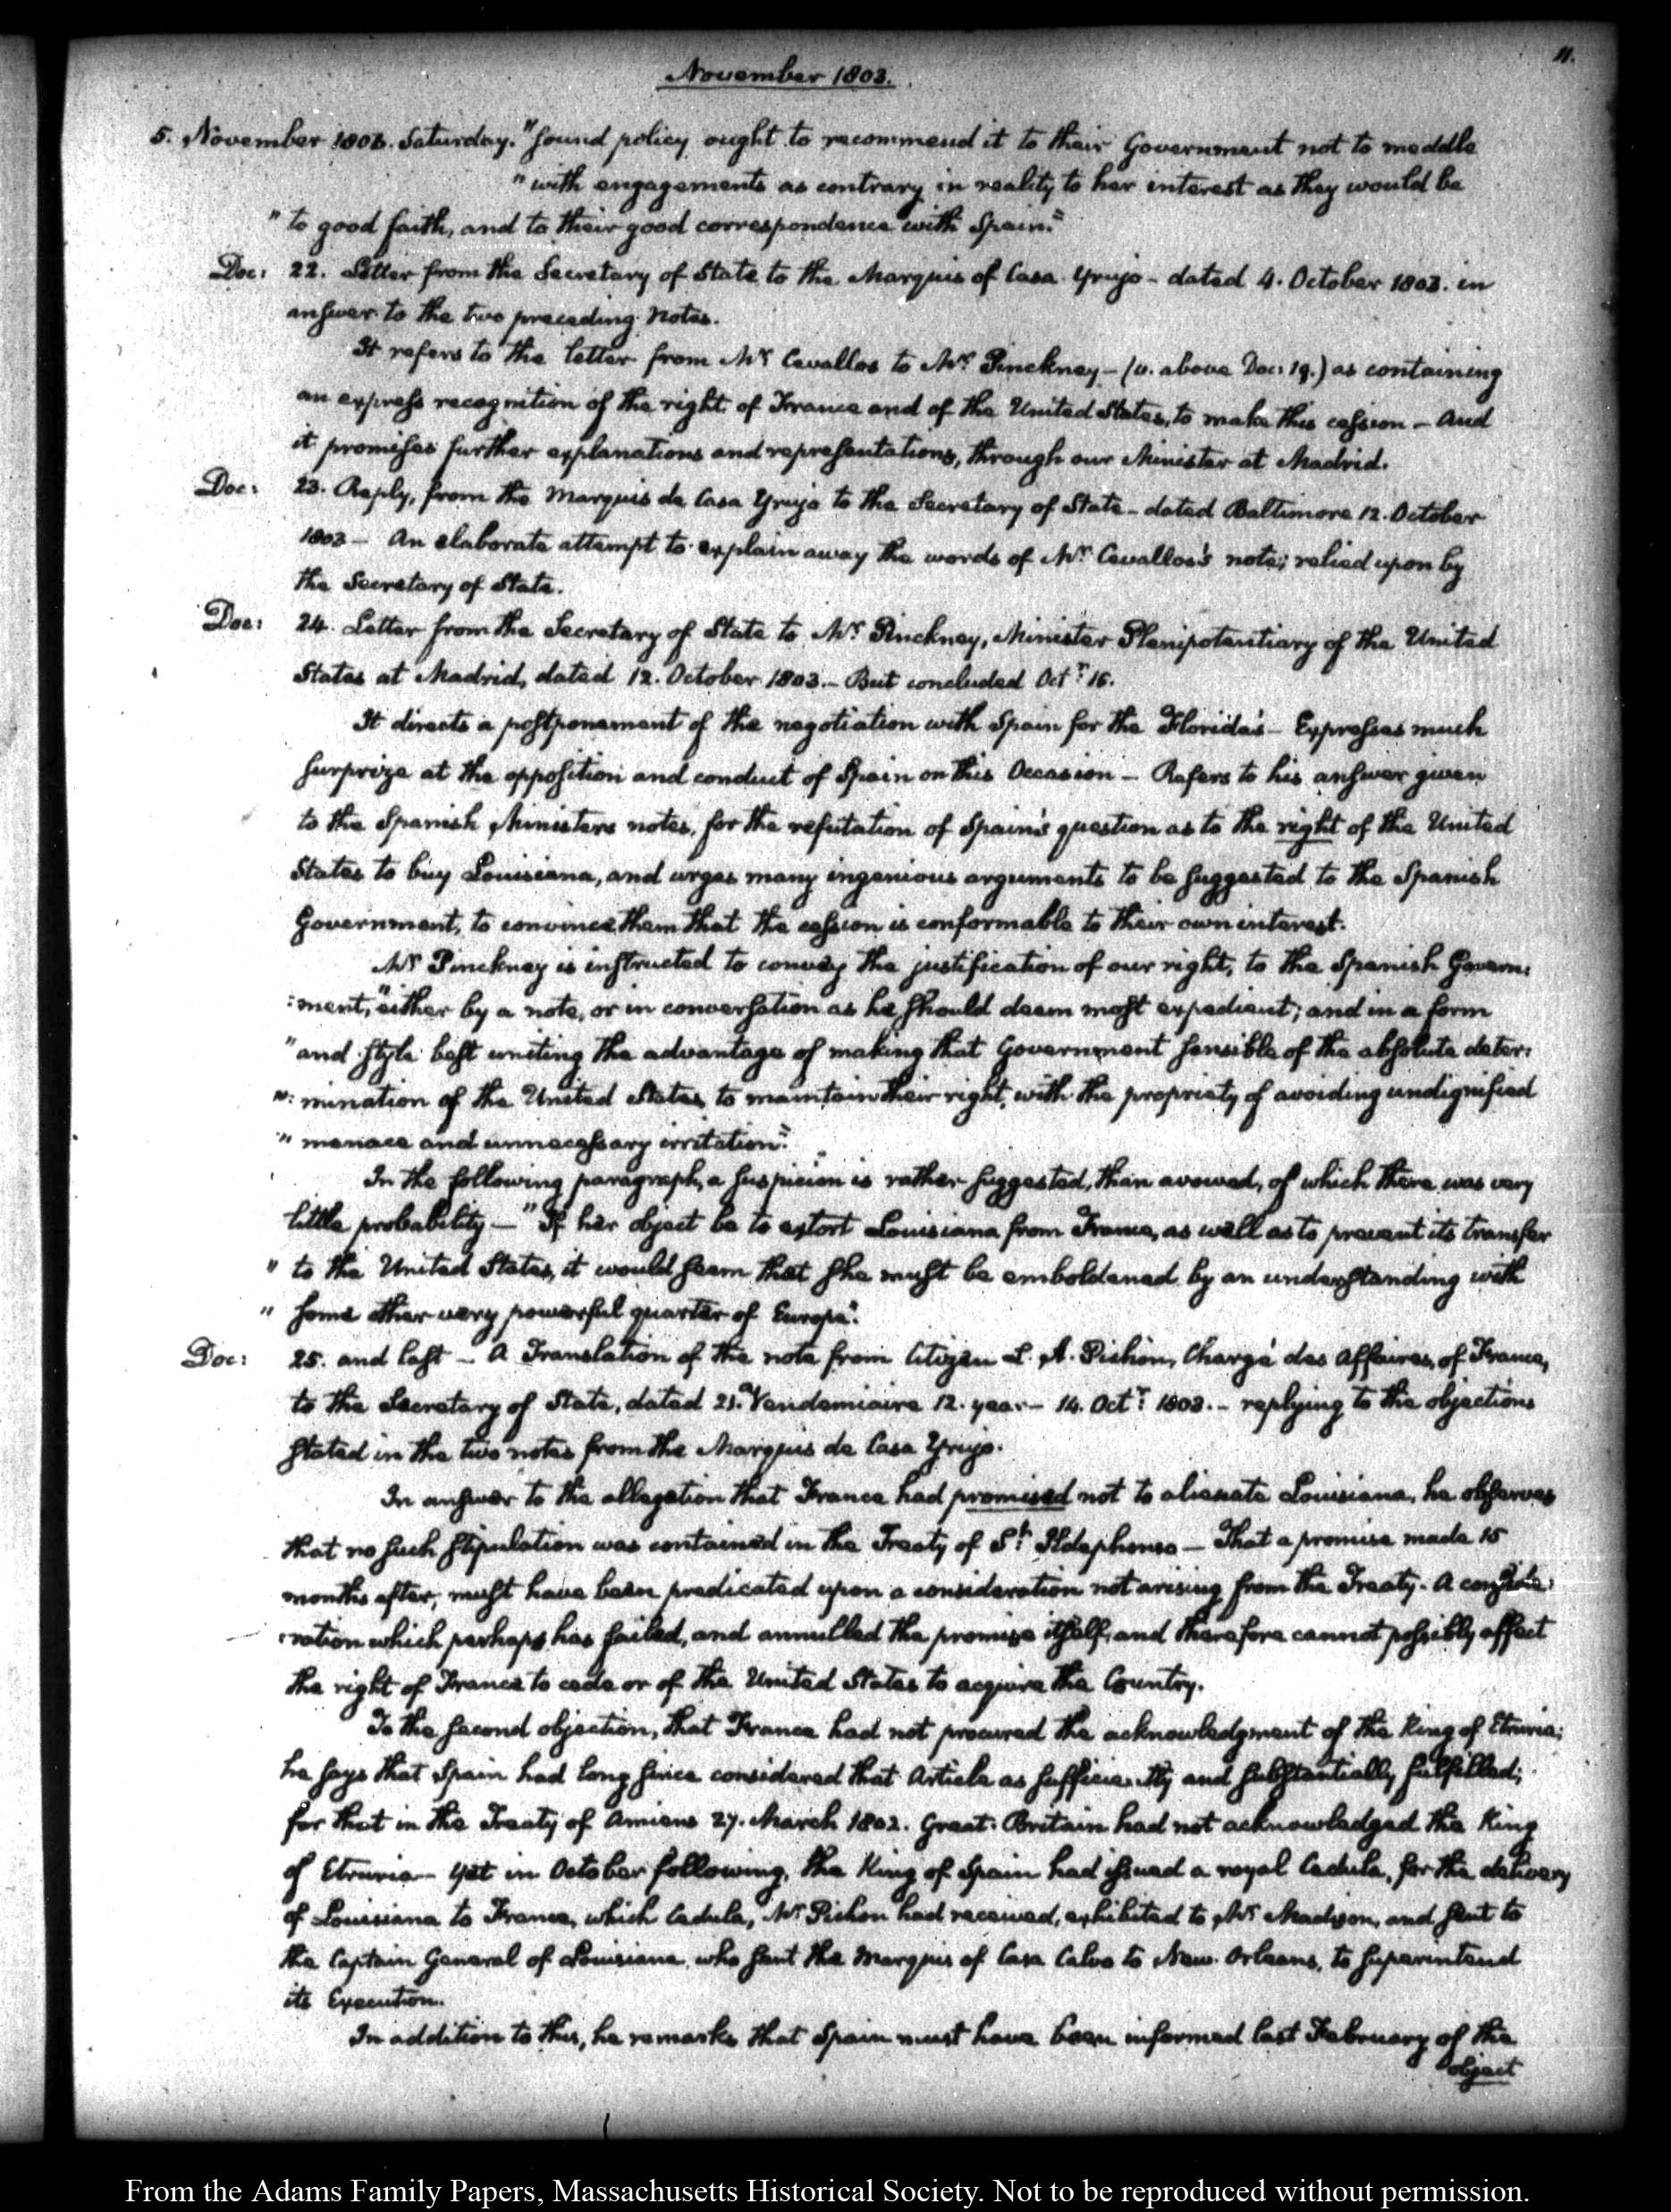 11.
November 1803.
5. November 1803. Saturday. "Sound policy ought to recommend it to their Government not to meddle
"with engagements as contrary in reality to her interest as they would be
"to good faith, and to their good correspondence with Spain."
Doc: 22. Letter from the Secretary of State to the Marquis of Casa Yrujo - dated 4. October 1803. in
answer to the two preceding Notes.
It refers to the letter from Mr Cevallos to Mr Pinckney - (v. above Doc: 19.) as containing
an express recognition of the right of France and of the United States, to make this cession - And
it promises further explanations and representations, through our Minister at Madrid.
Doc: 23. Reply, from the Marquis de Casa Yrujo to the Secretary of State - dated Baltimore 12. October
1803 - An elaborate attempt to explain away the words of Mr Cevallos's note; relied upon by
the Secretary of State.
Doc: 24. Letter from the Secretary of State to Mr Pinckney, Minister Plenipotentiary of the United
States at Madrid, dated 12. October 1803. - But concluded Octr 16.
It directs a postponement of the negotiation with Spain for the Florida's - Expresses much
surprize at the opposition and conduct of Spain on this Occasion - Refers to his answer given
to the Spanish Ministers notes, for the refutation of Spain's question as to the right of the United
States to buy Louisiana, and urges many ingenious arguments to be suggested to the Spanish
Government, to convince them that the cession is conformable to their own interest.
Mr Pinckney is instructed to convey the justification of our right, to the Spanish Govern:
:ment, "either by a note, or in conversation as he should deem most expedient; and in a form
"and style best uniting the advantage of making that Government sensible of the absolute deter:
":mination of the United States, to maintain their right, with the propriety of avoiding undignified
"menace and unnecessary irritation."
In the following paragraph, a suspicion is rather suggested, than avowed, of which there was very
little probability - "If her object be to extort Louisiana from France, as well as to prevent its transfer
"to the United States, it would seem that she must be emboldened by an understanding with
"some other very powerful quarter of Europe".
Doc: 25. and last - A Translation of the note from Citizen L. A. Pichon, Chargé des Affaires, of France,
to the Secretary of State, dated 21. Vendemiaire 12. year - 14. Octr 1803. - replying to the objections
stated in the two notes from the Marquis de Casa Yrujo.
In answer to the allegation that France had promised not to alienate Louisiana, he observes
that no such stipulation was contained in the Treaty of St Ildephonso - That a promise made 15
months after, must have been predicated upon a consideration not arising from the Treaty. A conside:
:ration which perhaps has failed, and annulled the promise itself, and therefore cannot possibly affect
the right of France to cede or of the United States to acquire the Country.
To the second objection, that France had not procured the acknowledgment of the King of Etruria;
he says that Spain had long since considered that Article as sufficiently and substantially fulfilled;
for that in the Treaty of Amiens 27. March 1802. Great Britain had not acknowledged the King
of Etruria - Yet in October following, the King of Spain had issued a royal Cedula, for the delivery
of Louisiana to France, which Cedula, Mr Pichon had received, exhibited to Mr Madison, and sent to
the Captain General of Louisiana, who sent the Marquis of Casa Calvo to New Orleans, to superintend
its Execution.
In addition to this, he remarks that Spain must have been informed last February of the
object
From the Adams Family Papers, Massachusetts Historical Society. Not to be reproduced without permission.